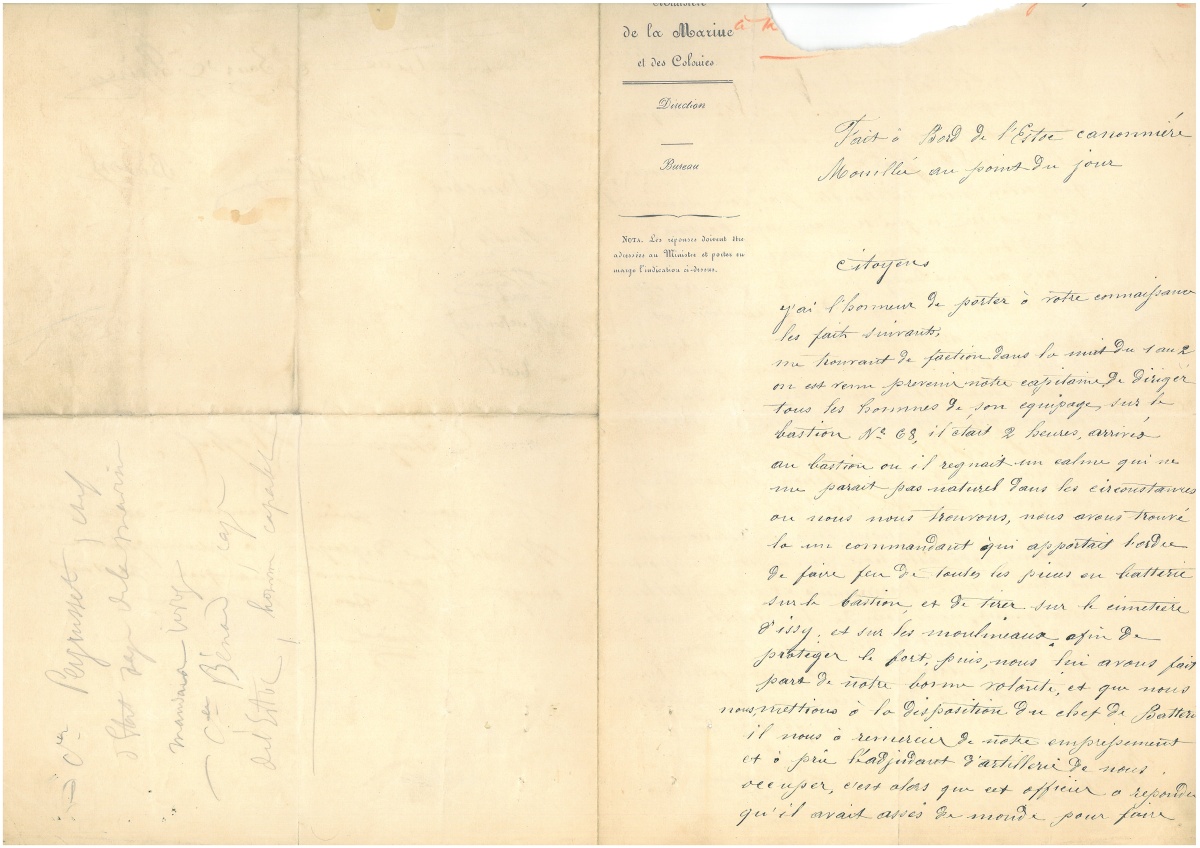 Ministère
de la Marine
et des Colonies
Direction
Bureau
NOTA. Les réponses doivent être
adressées au Ministre et porter en
marge l'indication ci-dessus.
à M
Fait à Bord de l'Estoc canonnière
Mouillée au point du jour
Citoyens
j'ai l'honneur de porter à votre connaissance
les faits suivants,
me trouvant de faction dans la nuit du 1 au 2
on est venu prevenir notre capitaine de diriger
tous les hommes de son équipage sur le
bastion No 68, il était 2 heures, arrivés
au bastion ou il regnait un calme qui ne
me parait pas naturel dans les circonstances
ou nous nous trouvons, nous avons trouvé
la un commandant qui apportait l'ordre
de faire feu de toutes les pieces en batterie
sur le bastion, et de tirer sur le cimetière
d'issy, et sur les moulineaux, afin de
protéger le fort, puis, nous lui avons fait
part de notre bonne volonté, et que nous
nous mettions à la disposition du chef de Batterie
il nous à remercier de notre empressement
et à prié l'adjudant d'artillerie de nous
occuper, c'est alors que cet officier a repondu
qu'il avait assés de monde pour faire
Cen Peyrusset, chef
d'Etat major de la marine
Cen Bénard cap
de l'Estoc, homme capable